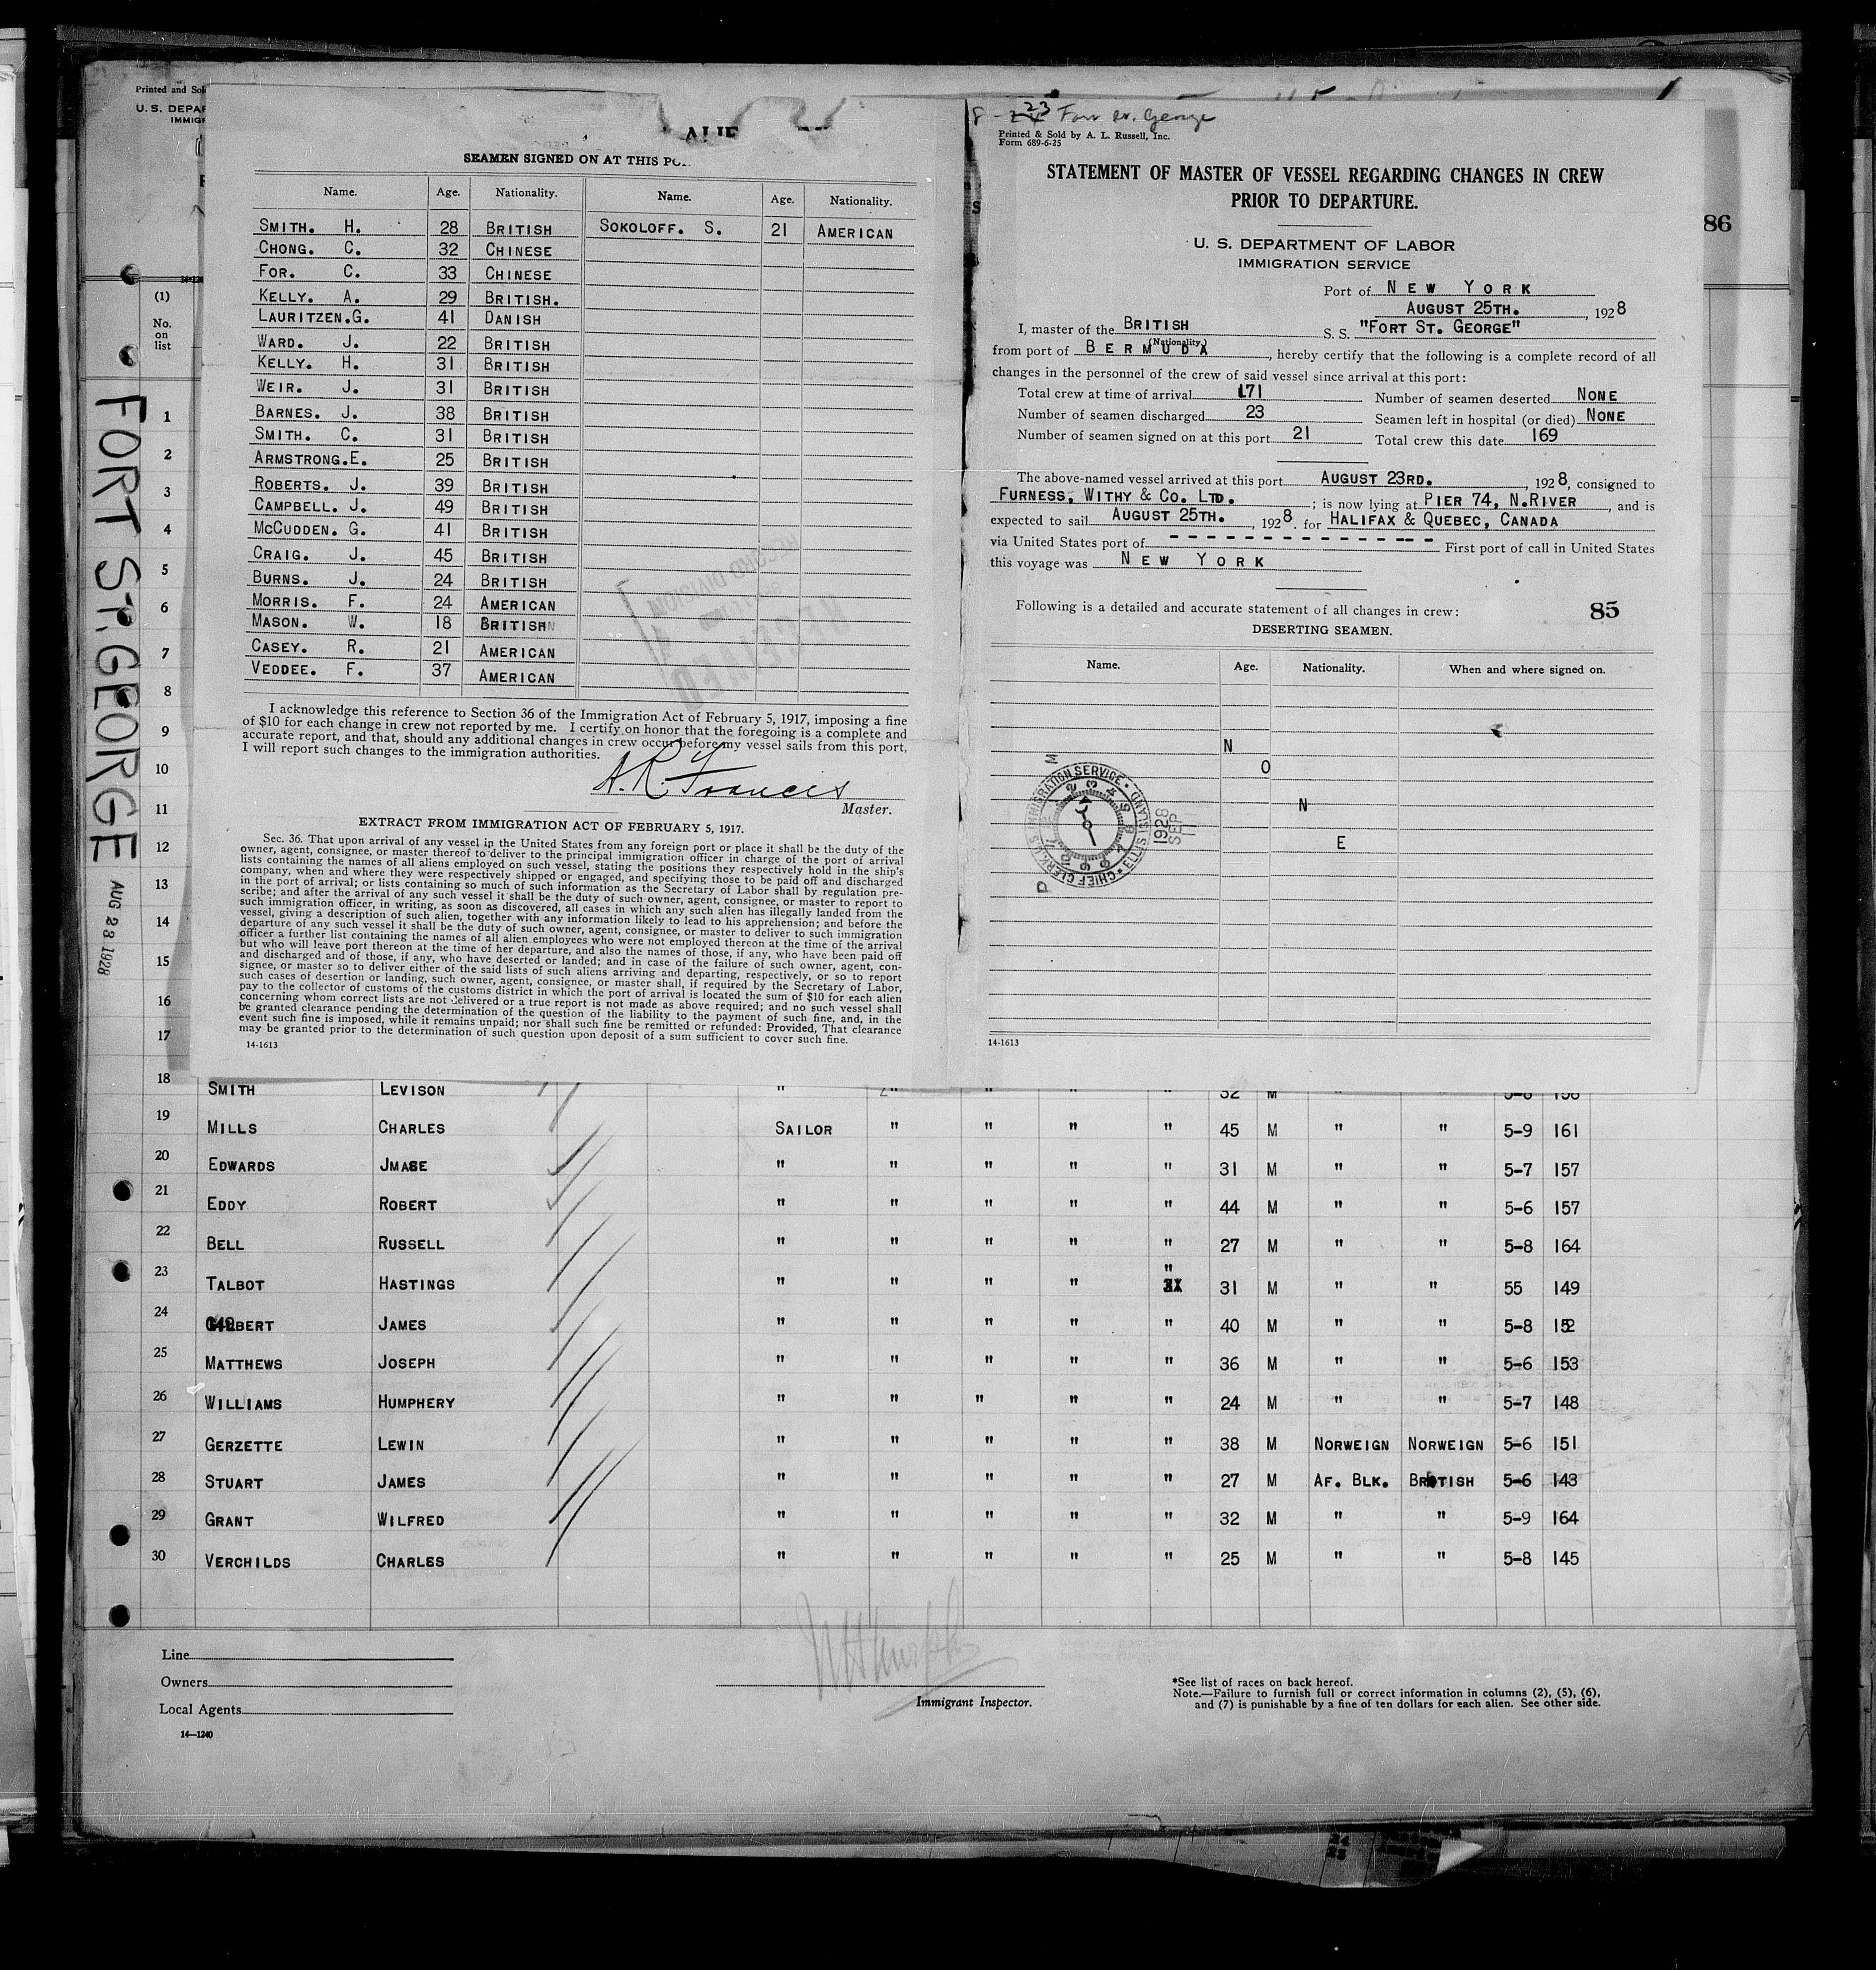 Printed and Sol
U. S. DEPAR
IMMIGR
ALIE
SEAMEN SIGNED ON AT THIS PO
Name. Age. Nationality. Name. Age. Nationality.
SMITH. H. 28 BRITISH SOKOLOFF. S. 21 AMERICAN
CHONG. C. 32 CHINESE
FOR. C. 33 CHINESE
KELLY. A. 29 BRITISH.
LAURITZEN.G. 41 DANISH
WARD. J. 22 BRITISH
KELLY. H. 31 BRITISH
WEIR. J. 31 BRITISH
BARNES. J. 38 BRITISH
SMITH. C. 31 BRITISH
ARMSTRONG.E. 25 BRITISH
ROBERTS. J. 39 BRITISH
CAMPBELL. J. 49 BRITISH
MCCUDDEN. G. 41 BRITISH
CRAIG. J. 45 BRITISH
BURNS. J. 24 BRITISH
MORRIS. F. 24 AMERICAN
MASON. W. 18 BRITISH
CASEY. R. 21 AMERICAN
VEDDEE. F. 37 AMERICAN
RECORD DIVISION
RECEIVED
I acknowledge this reference to Section 36 of the Immigration Act of February 5, 1917, imposing a fine
of $10 for each change in crew not reported by me. I certify on honor that the foregoing is a complete and
accurate report, and that, should any additional changes in crew occur before my vessel sails from this port,
I will report such changes to the immigration authorities.
A. R. Francis
Master.
EXTRACT FROM IMMIGRATION ACT OF FEBRUARY 5, 1917.
Sec. 36. That upon arrival of any vessel in the United States from any foreign port or place it shall be the duty of the
owner, agent, consignee, or master thereof to deliver to the principal immigration officer in charge of the port of arrival
lists containing the names of all aliens employed on such vessel, stating the positions they respectively hold in the ship's
company, when and where they were respectively shipped or engaged, and specifying those to be paid off and discharged
in the port of arrival; or lists containing so much of such information as the Secretary of Labor shall by regulation pre-
scribe; and after the arrival of any such vessel it shall be the duty of such owner, agent, consignee, or master to report to
such immigration officer, in writing, as soon as discovered, all cases in which any such alien has illegally landed from the
vessel, giving a description of such alien, together with any information likely to lead to his apprehension; and before the
departure of any such vessel it shall be the duty of such owner, agent, consignee, or master to deliver to such immigration
officer a further list containing the names of all alien employees who were not employed thereon at the time of the arrival
but who will leave port thereon at the time of her departure, and also the names of those, if any, who have been paid off
and discharged and of those, if any, who have deserted or landed; and in case of the failure of such owner, agent, con-
signee, or master so to deliver either of the said lists of such aliens arriving and departing, respectively, or so to report
such cases of desertion or landing, such owner, agent, consignee, or master shall, if required by the Secretary of Labor,
pay to the collector of customs of the customs district in which the port of arrival is located the sum of $10 for each alien
concerning whom correct lists are not delivered or a true report is not made as above required; and no such vessel shall
be granted clearance pending the determination of the question of the liability to the payment of such fine, and, in the
event such fine is imposed, while it remains unpaid; nor shall such fine be remitted or refunded: Provided, That clearance
may be granted prior to the determination of such question upon deposit of a sum sufficient to cover such fine.
14-1613
8 - 24 23 Fort St. George
Printed & Sold by A. L. Russell, Inc.
Form 689-6-25
STATEMENT OF MASTER OF VESSEL REGARDING CHANGES IN CREW
PRIOR TO DEPARTURE.
U. S. DEPARTMENT OF LABOR
IMMIGRATION SERVICE
Port of NEW YORK
AUGUST 25TH. , 1928
I, master of the BRITISH S. S. "FORT ST. GEORGE"
(Nationality)
from port of BERMUDA , hereby certify that the following is a complete record of all
changes in the personnel of the crew of said vessel since arrival at this port:
Total crew at time of arrival 171 Number of seamen deserted NONE
Number of seamen discharged 23 Seamen left in hospital (or died) NONE
Number of seamen signed on at this port 21 Total crew this date 169
The above-named vessel arrived at this port AUGUST 23RD. , 1928, consigned to
FURNESS, WITHY & CO. LTD. ; is now lying at PIER 74, N.RIVER , and is
expected to sail AUGUST 25TH. , 1928. for HALIFAX & QUEBEC, CANADA
via United States port of - - - - - - - - - - - - - - - First port of call in United States
this voyage was NEW YORK
Following is a detailed and accurate statement of all changes in crew: 85
DESERTING SEAMEN.
Name. Age. Nationality. When and where signed on.
N
O
N
E
CHIEF CLERK U.S. IMMIGRATION SERVICE • ELLIS ISLAND
1928 SEP 1
P M
14-1613
86
FORT ST. GEORGE AUG 23 1928
(1)
No.
on
list
1
2
3
4
5
6
7
8
9
10
11
12
13
14
15
16
17
18 SMITH LEVISON " " " " " 32 M 5-8
19 MILLS CHARLES SAILOR " " " " 45 M " " 5-9 161
20 EDWARDS JMASE " " " " " 31 M " " 5-7 157
21 EDDY ROBERT " " " " " 44 M " " 5-6 157
22 BELL RUSSELL " " " " " 27 M " " 5-8 164
23 TALBOT HASTINGS " " " " " 31 M " " 55 149
24 GILBERT JAMES " " " " " 40 M " " 5-8 152
25 MATTHEWS JOSEPH " " " " " 36 M " " 5-6 153
26 WILLIAMS HUMPHERY " " " " " 24 M " " 5-7 148
27 GERZETTE LEWIN " " " " " 38 M NORWEIGN NORWEIGN 5-6 151
28 STUART JAMES " " " " " 27 M AF. BLK. BRITISH 5-6 143
29 GRANT WILFRED " " " " " 32 M " " 5-9 164
30 VERCHILDS CHARLES " " " " " 25 M " " 5-8 145
Line
Owners
Local Agents
14—1240
Immigrant Inspector.
*See list of races on back hereof.
Note.—Failure to furnish full or correct information in columns (2), (5), (6),
and (7) is punishable by a fine of ten dollars for each alien. See other side.
24
25